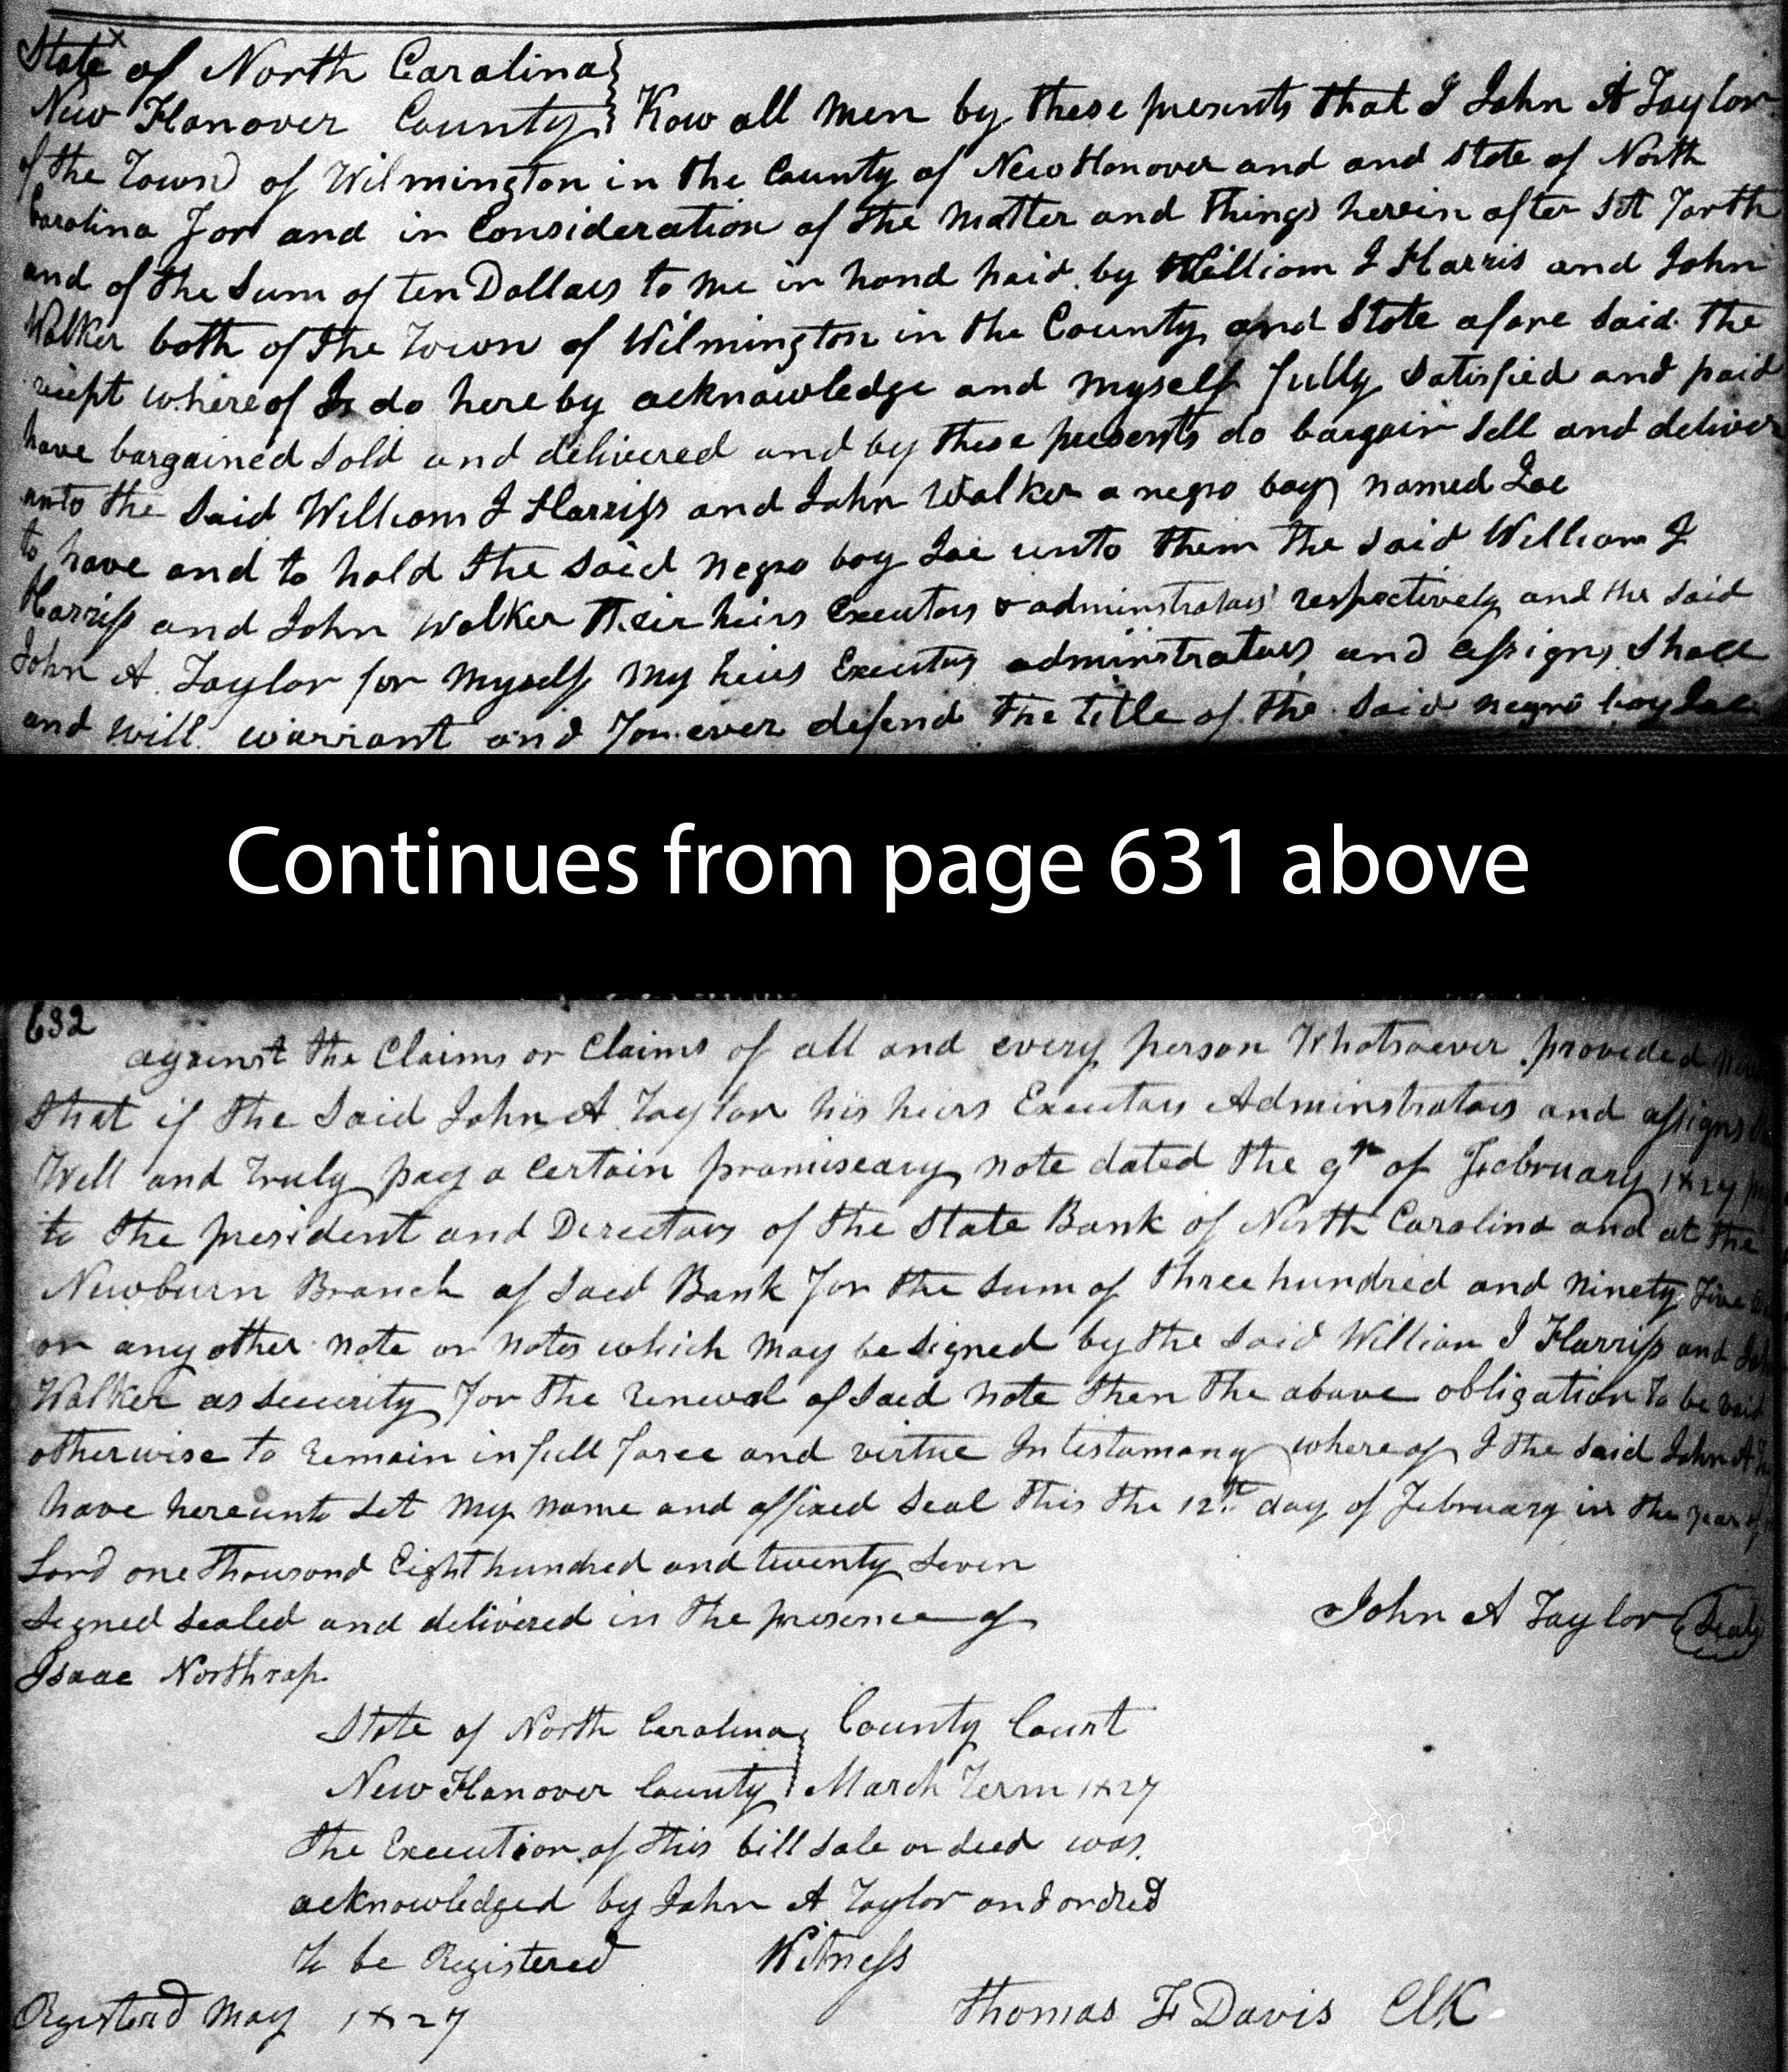 State of North Carolina
New Hanover County Kow all men by these presents that I John A Taylor
of the Town of Wilmington in the County of New Hanover and and State of North
Carolina For and in Consideration of the Matter and things herein after Set Forth
and of the Sum of ten Dollars to me in hand paid by William J Harris and John
Walker both of the Town of Wilmington in the County and State afore Said the
reciept whereof I do hereby acknowledge and myself fully Satisfied and paid
have bargained Sold and delivered and by these presents do bargain Sell and deliver
unto the Said William J Harriss and John Walker a negro boy named Joe
to have and to hold the said negro boy Joe unto them the said William J
Harriss and John Walker their heirs Executors & adminstrators respectively and the said
John A. Taylor for myself my heirs Executors adminstrators and assigns Shall
and will warrant and Forever defend the title of the Said negro boy Joe
Continues from page 631 above
632
against the Claims or Claims of all and every person Whatsoever provided
that if the Said John A Taylor his heirs Executors Adminstrators and assigns
Well and Truly pay a Certain promiseary note dated the 9th of February 1827
to the president and Directors of the State Bank of North Carolina and at the
Newburn Branch of Said Bank For the Sum of three hundred and ninety Five
or any other note or notes which may be signed by the Said William J Harriss and
Walker as security For the renewal of Said note then the above obligation to be void
otherwise to remain in full force and virtue In testamony whereof I the Said John A
have hereunto Set my name and affixed Seal this the 12th day of February in the year of
Lord one thousand Eight hundred and twenty Seven
Signed Sealed and delivered in the presence of John A Taylor Seal
Isaac Northrop
State of North Carolina County Court
New Hanover County March Term 1827
the Execution of this bill Sale or deed was
acknowledged by John A Taylor and ordred
to be Registered Witness
Registerd May 1827 Thomas F Davis Clk